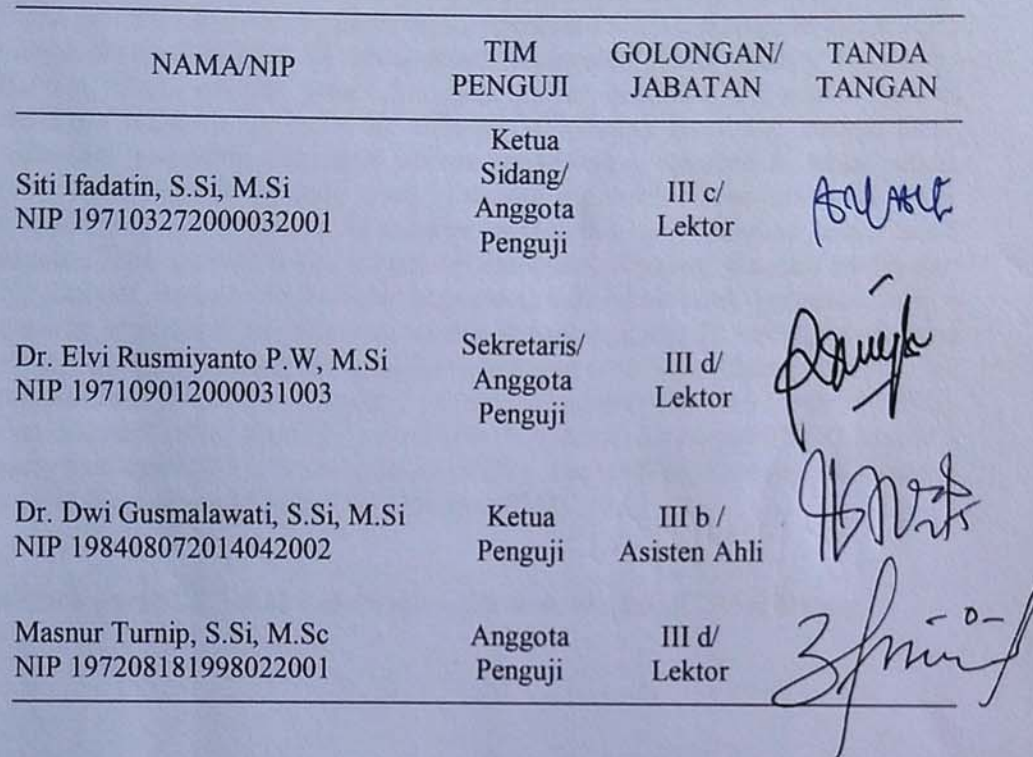 NAMA/NIP TIM PENGUJI GOLONGAN/ JABATAN TANDA TANGAN
Siti Ifadatin, S.Si, M.Si
NIP 197103272000032001
Ketua
Sidang/
Anggota
Penguji
III c/
Lektor
Dr. Elvi Rusmiyanto P.W, M.Si
NIP 197109012000031003
Sekretaris/
Anggota
Penguji
III d/
Lektor
Dr. Dwi Gusmalawati, S.Si, M.Si
NIP 198408072014042002
Ketua
Penguji
III b /
Asisten Ahli
Masnur Turnip, S.Si, M.Sc
NIP 197208181998022001
Anggota
Penguji
III d/
Lektor